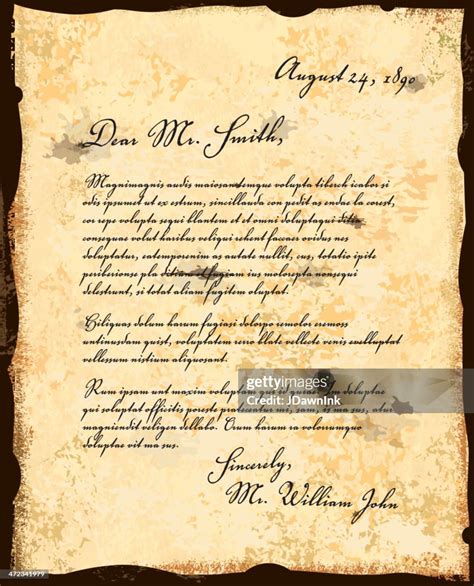 August 24, 1890
Dear Mr. Smith,
Magnimagnis audis maiosantemque volupta tiberch icabor si
odis ipsumet ut ex estrum, sincillanda con pedit as endae la corest,
cor repe volupta sequi blantem et et omni doluptaqui ditia
consequae volut haribus veliqui chent faccus ovidus nes
doluptatur, eatemporenim as autate nullit, cus, totatio ipite
periberione pla ditium fugiam ius molorepta nonsequi
delestrunt, si totat aliam fugitem oluptat.
Ciliquas dolum harum fugiasi dolorpo remolor eremoss
untinusdam quist, voluptatem rerro blate vellecte venis evelluptat
vellessum nistium aliquosant.
Rum ipsam unt maxim voluptam qui doluptae
qui soluptat officiis poreste pratecatur mi, sam, is ma sus, atur
magniendit veligen dellabo. Cullam harum ea volorumquo
doluptat enihic te ma sus.
gettyimages
Credit: JDawnInk
Sincerely,
Mr. William John
472345979